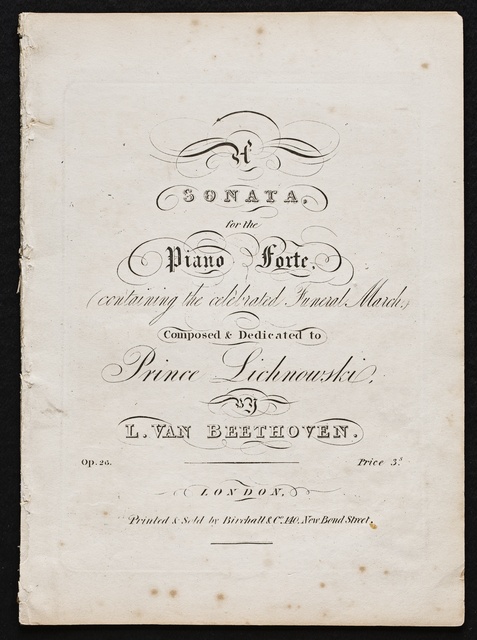 A
SONATA,
for the
Piano Forte,
(containing the celebrated Funeral March,)
Composed & Dedicated to
Prince Lichnowski,
BY
L. VAN BEETHOVEN.
Op. 26. Price 3s
LONDON,
Printed & Sold by Birchall & Co. 140, New Bond Street.